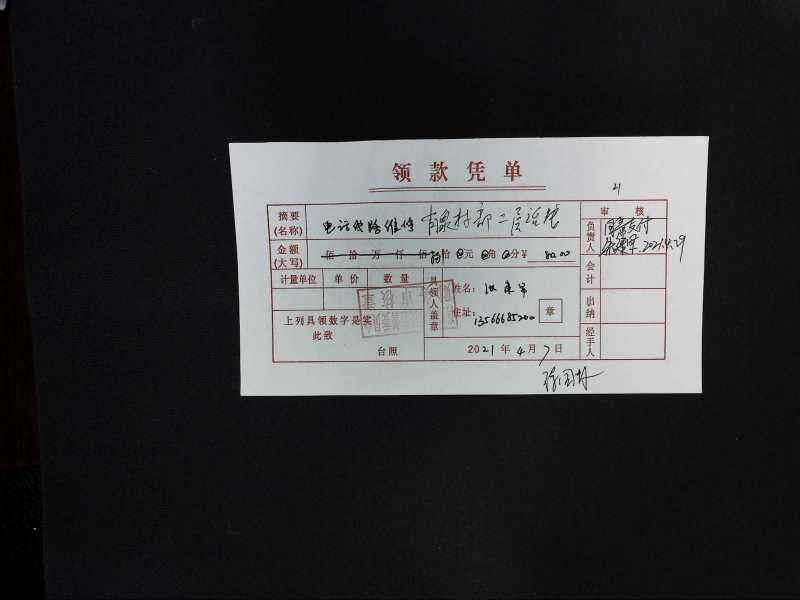 领款凭单
21
摘要 电话线路维修 村部二层话费 审核
(名称)
金额 佰拾万仟佰捌拾0元0角0分¥ 80.00 负责人 同意支付
(大写) 2021.4.29
计量单位 单价 数量 具领人盖章 姓名: 会计
上列具领数字是实 住址: 13566685200 章 出纳
此致
台照 2021年4月7日 经手人